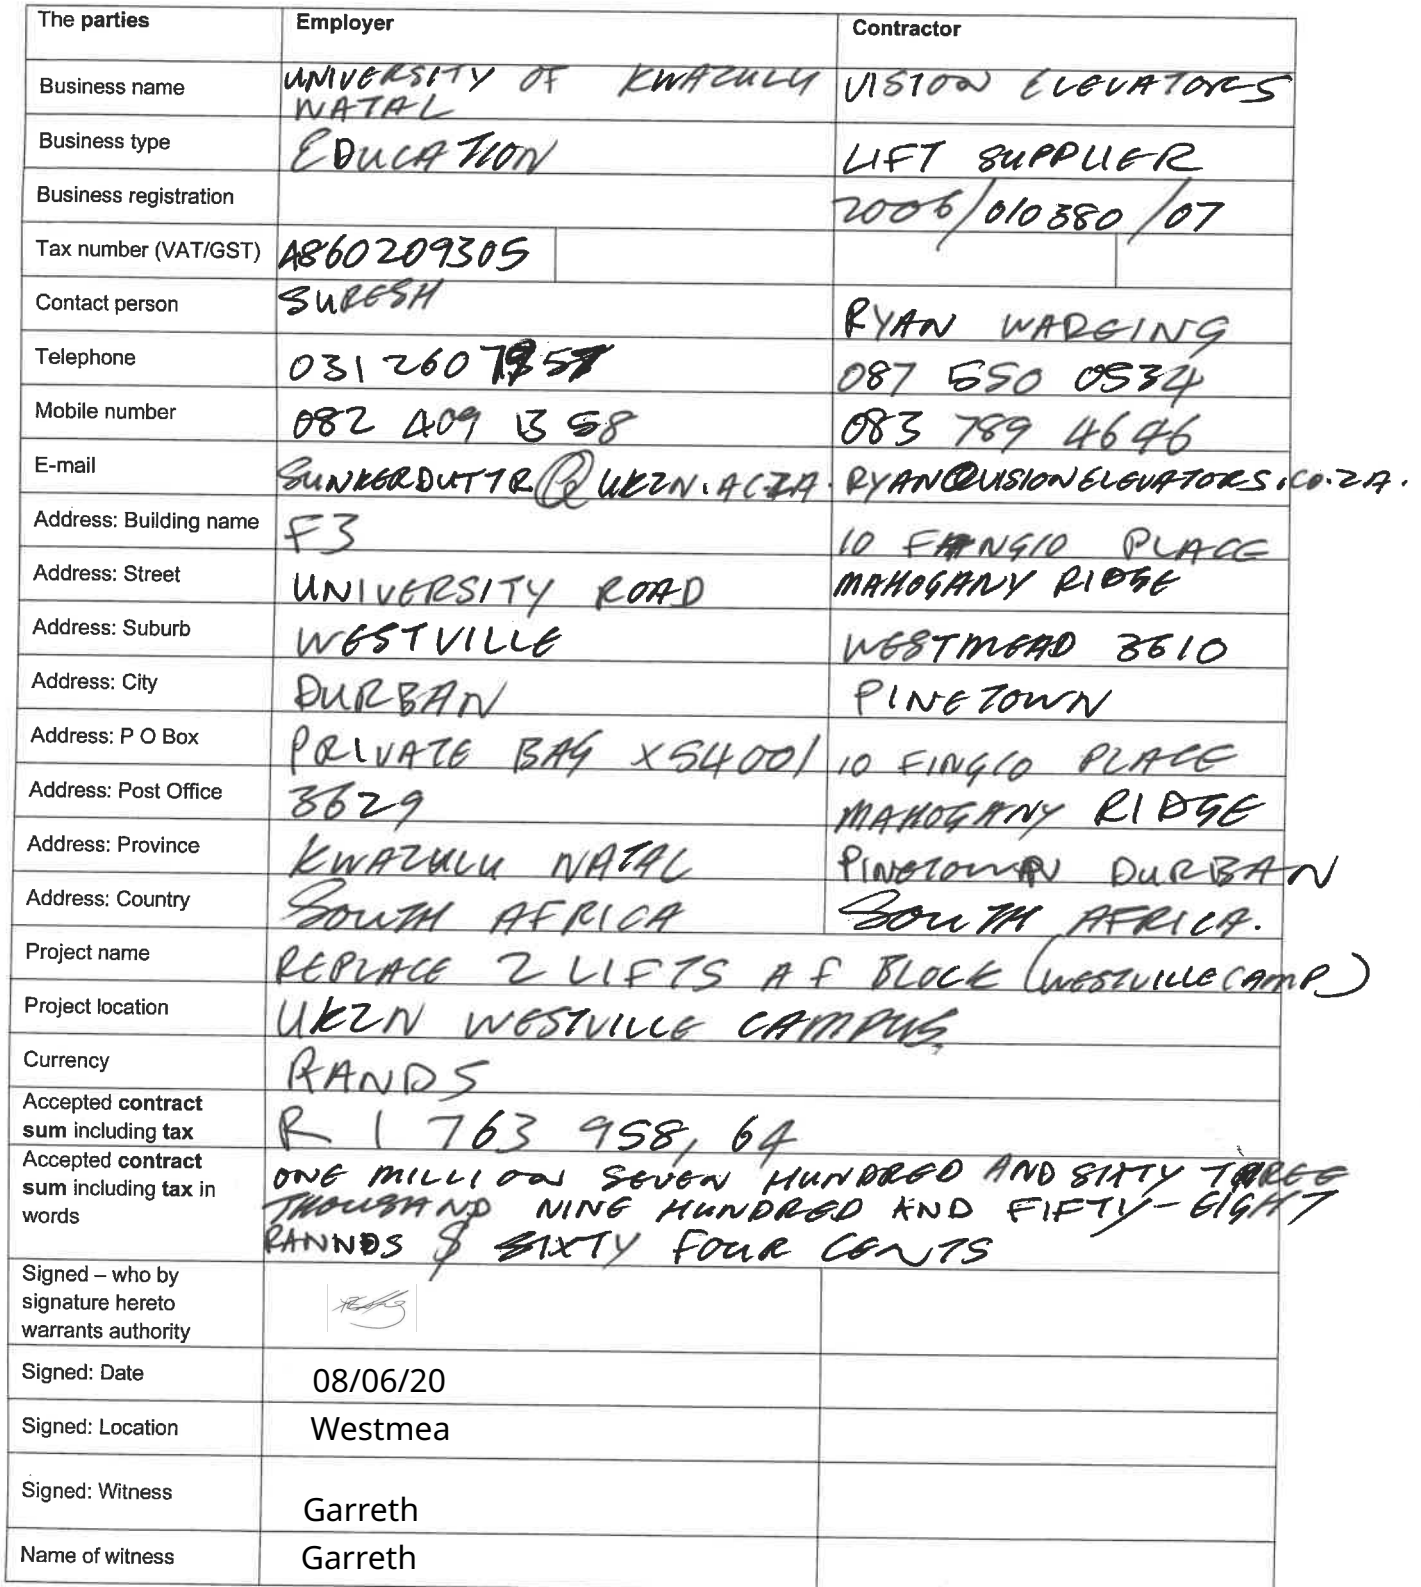 The parties Employer Contractor
Business name UNIVERSITY OF KWAZULU VISION ELEVATORS
NATAL
Business type EDUCATION LIFT SUPPLIER
Business registration 2006/010380/07
Tax number (VAT/GST) A860209305
Contact person SURESH RYAN WAREING
Telephone 031 260 087 550 0534
Mobile number 082 409 1358 083 789 4646
E-mail SUNKERDUTTR@UKZN.AC.ZA. RYAN@VISIONELEVATORS.CO.ZA.
Address: Building name F3 10 FANGIO PLACE
Address: Street UNIVERSITY ROAD MAHOGANY RIDGE
Address: Suburb WESTVILLE WESTMEAD 3610
Address: City DURBAN PINETOWN
Address: P O Box PRIVATE BAG X54001 10 FINGIO PLACE
Address: Post Office 3629 MAHOGANY RIDGE
Address: Province KWAZULU NATAL PINETOWN DURBAN
Address: Country SOUTH AFRICA SOUTH AFRICA.
Project name REPLACE 2 LIFTS A F BLOCK (WESTVILLE CAMP)
Project location UKZN WESTVILLE CAMPUS
Currency RANDS
Accepted contract
sum including tax R 1 763 958,64
Accepted contract ONE MILLION SEVEN HUNDRED AND SIXTY THREE
sum including tax in THOUSAND NINE HUNDRED AND FIFTY-EIGHT
words RANNDS $ SIXTY FOUR CENTS
Signed – who by
signature hereto
warrants authority
Signed: Date 08/06/20
Signed: Location Westmea
Signed: Witness Garreth
Name of witness Garreth